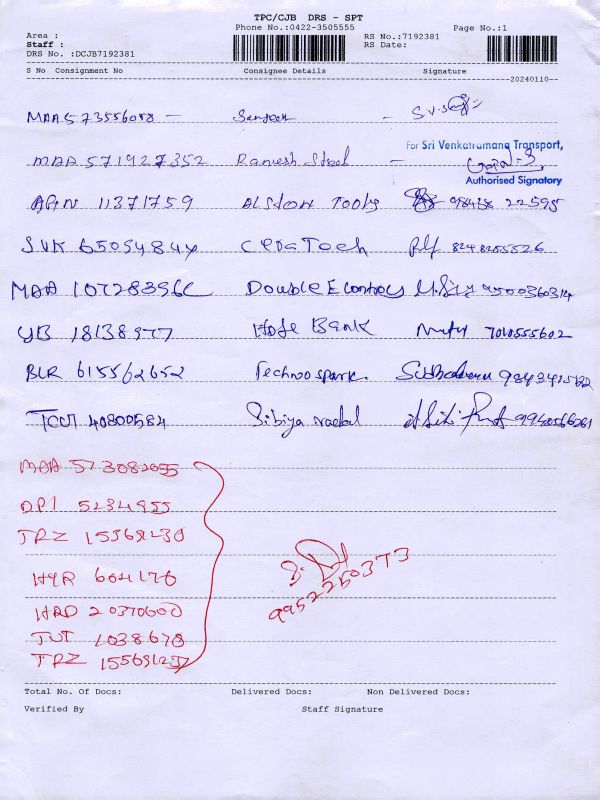 TPC/CJB DRS - SPT
Phone No.:0422-3505555
Area :
Staff :
DRS No. :DCJB7192381
RS No.:7192381
RS Date:
Page No.:1
S No Consignment No Consignee Details Signature
20240110
MAA 573556058 - Sanjeev -
MAA 571927352 Ramesh Steel -
For Sri Venkatramana Transport,
Authorised Signatory
AGN 11371759 Alston Tools 98438 22595
SVK 65054844 CROa Tech 8248255526
MAA 107283956 Double E controls 9500360314
YB 18138977 Hofe Bank 7010555602
BLR 615562652 Technospark
TCUT 40800584 Sibiya
MAA 573082055
DPI 5234955
TRZ 155691230
HYR 6041170
HRD 20370600
TUT 1038678
TRZ 155691232
9952250373
Total No. Of Docs: Delivered Docs: Non Delivered Docs:
Verified By Staff Signature